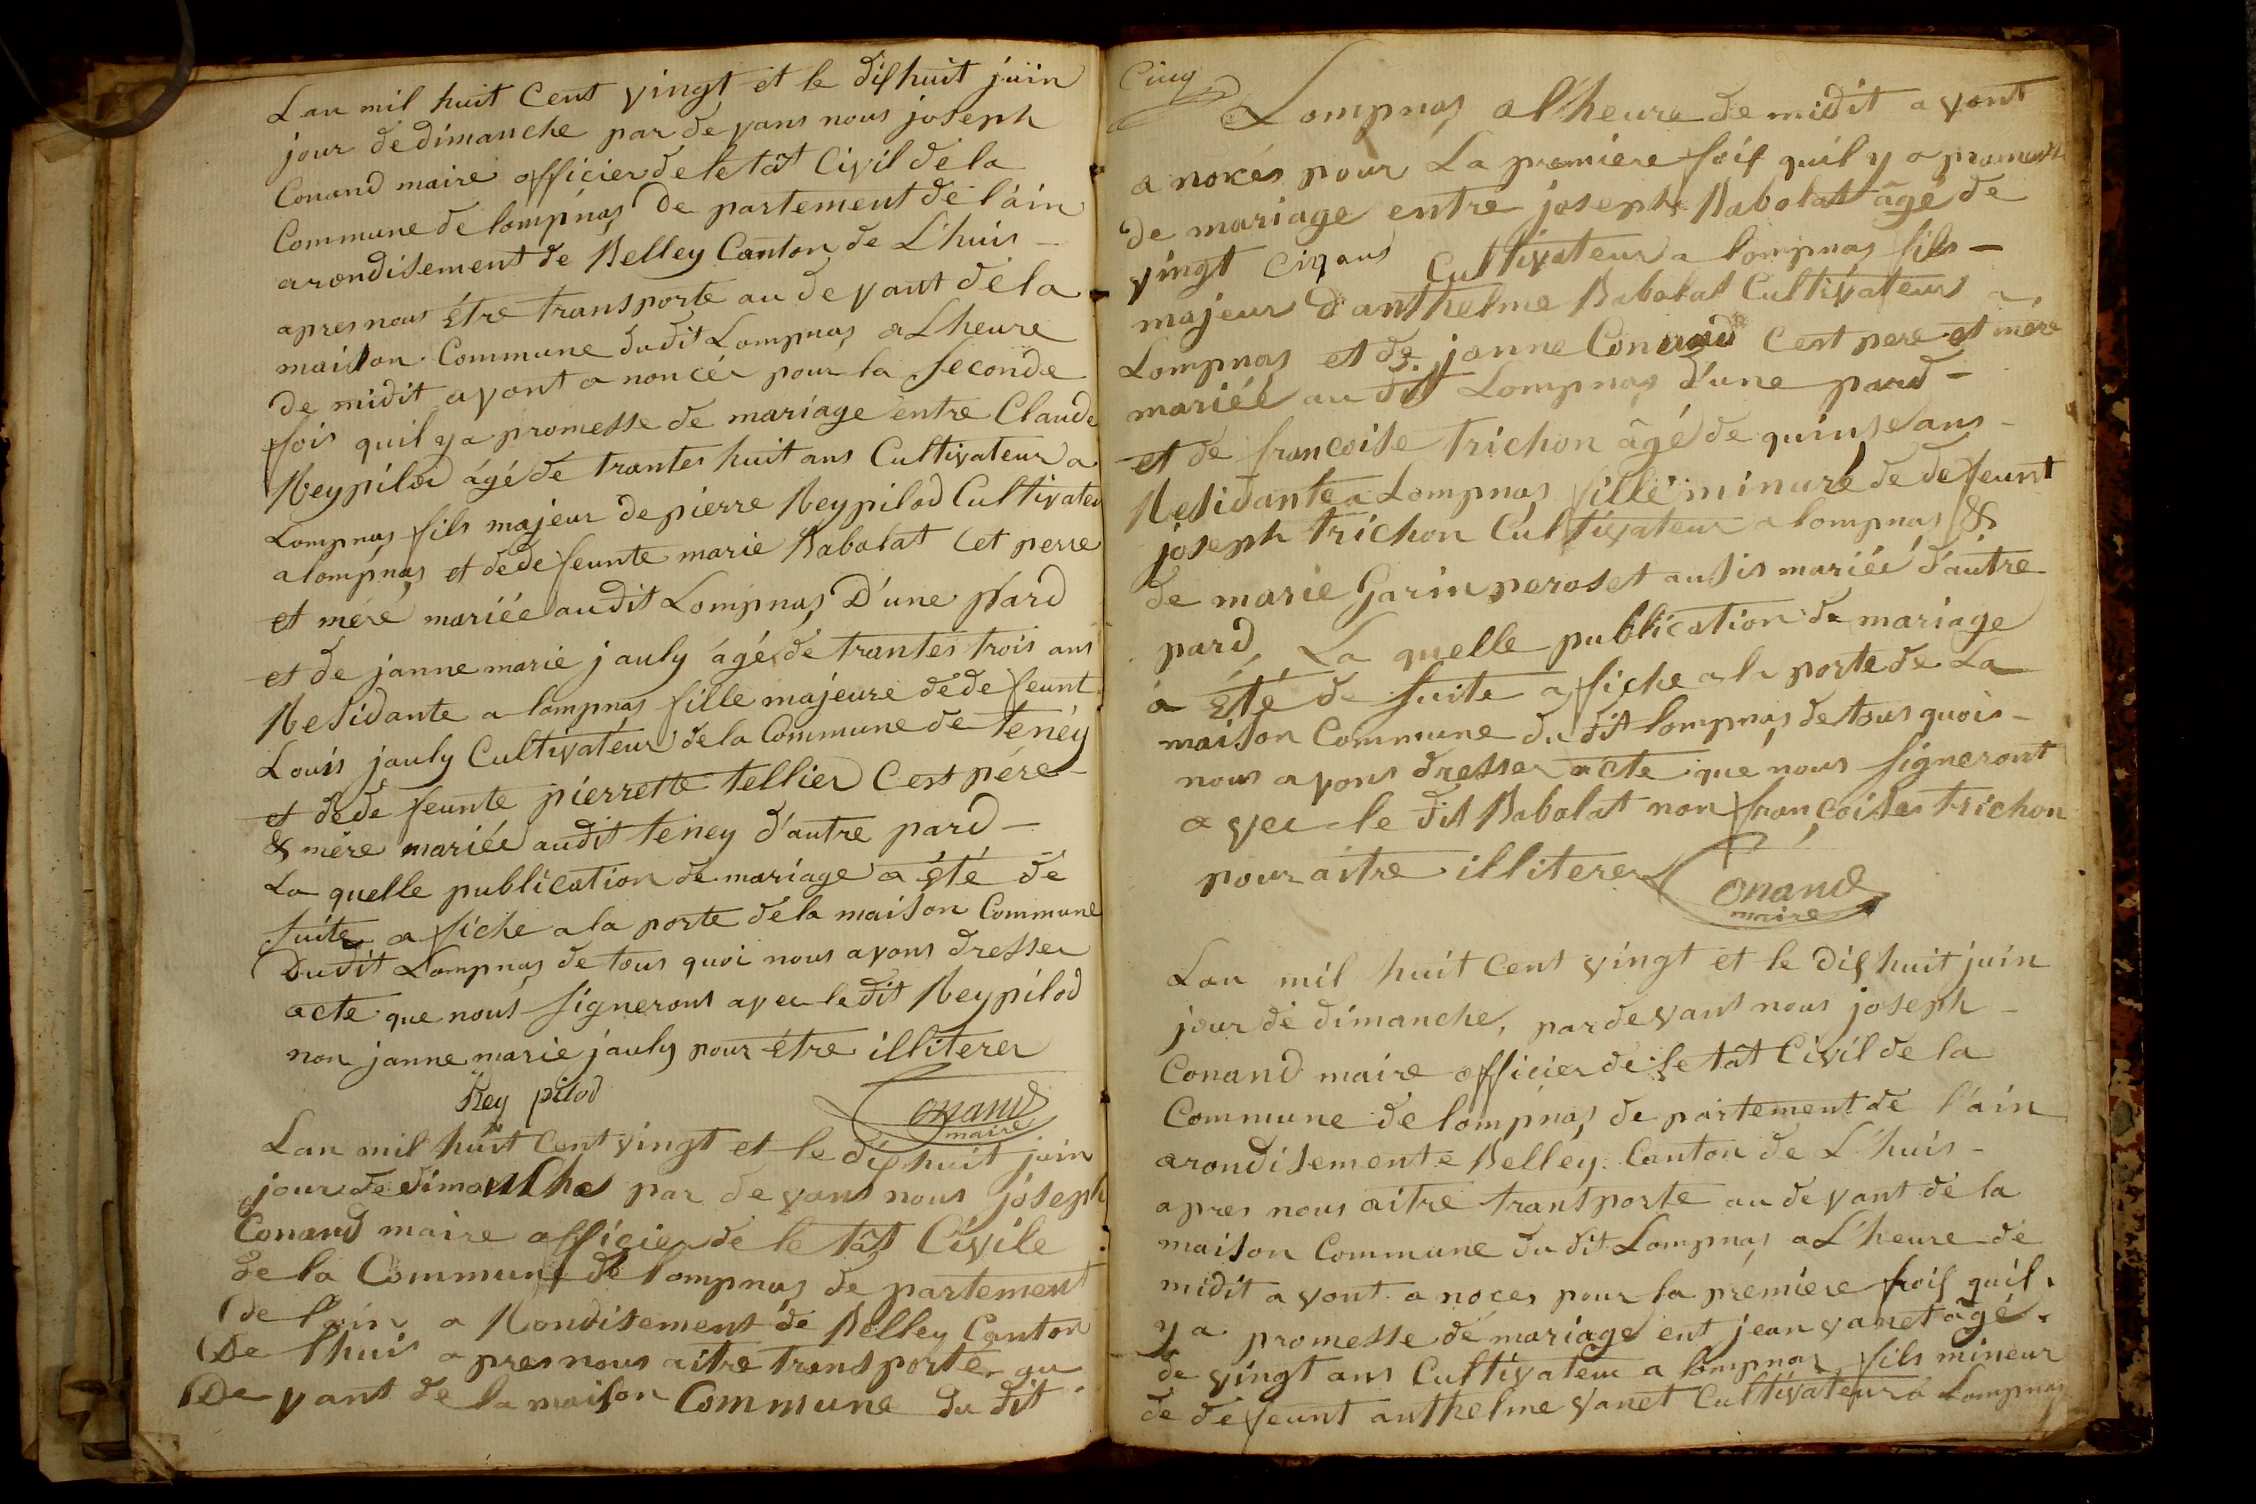 Lan mil huit Cent vingt et le dishuit juin
jour de dimanche par devans nous joseph
Conand maire officier de letat Civil de la
Commune de lompnas de partement de l'ain
arondisement de Belley Canton de L'huis -
apres nous être transporte au devant de la
maison Commune du dit Lompnas a Lheure
de midit ayont anoncér pour la seconde
fois quil ya promesse de mariage entre Claude
Reypilod âgé de trantes huit ans Cultivateur a
Lompnas fils majeur de pierre Reypilod Cultivateu
a lompnas et de defeunte marie Babolat Cet perre
et mére mariée audit Lompnas D'une pard
et de janne marie jauly âgé de trantes trois ans
Residante a lompnas fille majeure de defeunt
Louis jauly Cultivateur de la Commune de teney
et de defeunte pierrette tellier C'est pére -
& mére mariée audit teney d'autre pard -
La quelle publication de mariage a été de
suite afiche a la porte de la maison Commune
Dudit Lompnas de tous quoi nous avons dresser
acte que nous signerons avec le dit Reypilod
non janne marie jauly pour être illiterer
Rey pilod Conand
maire
Lan mil huit Cent vingt et le dishuit juin
jour de dimanche par devans nous joseph
Conand maire officier de letat Civile
de la Commune de lompnas de partement
de l'ain a Rondisement de Belley Canton
De lhuis apres nous aitre transporter au
De vant de la maison Commune du dit
Cinq
Lompnas a l'heure de midit ayont
a nocés pour La premiere fois quil y a promesse
de mariage entre joseph Babolat âgé de
vingt Cinq ans Cultivateur a lompnas fils -
majeur d'anthelme Babolat Cultivateur a
Lompnas et de janne Conand C'est pere et mére
mariéé au dit Lompnas d'une pard -
et de francoise trichon âgé de quinse ans -
Residante a Lompnas fille minure de defeunt
joseph trichon Cultivateur a lompnas &
de marie Garin peroset ausis mariéé d'autre
pard, La quelle publication de mariage
a été de suite afiche a la porte de La
maison Commune du dit lompnas de tous quois -
nous avons dresser acte que nous signeront
avec le dit Babolat non françoises trichon
pour aitre illiterer Conand
maire
Lan mil huit Cent vingt et le dishuit juin
jour de dimanche, par devant nous joseph -
Conand maire officier de letat Civil de la
Commune de lompnas de partement de l'ain
arondisement e Belley Canton de L'huis -
apres nous aitre transporte au devant de la
maison Commune du dit Lompnas a L'heure de
midit ayont anoces pour la premiere frois quil
ya promesse de mariage ent jean vanet âgé
de vingt ans Cultivateur a lompnas fils mineur
de defeunt anthelme vanet Cultivateur a Lompnas